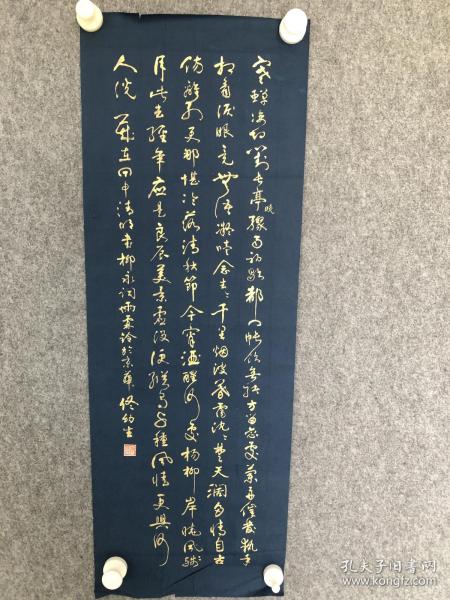 寒蝉凄切对长亭晚骤雨初歇都门帐饮无绪方留恋处兰舟催发执手
相看泪眼竟无语凝噎念去去千里烟波暮霭沉沉楚天阔多情自古
伤离别更那堪冷落清秋节今宵酒醒何处杨柳岸晓风残
月此去经年应是良辰美景虚设便纵有千种风情更与何
人说
清明 柳永词雨霖铃於京华
孔夫子旧书网
book.kongfz.com